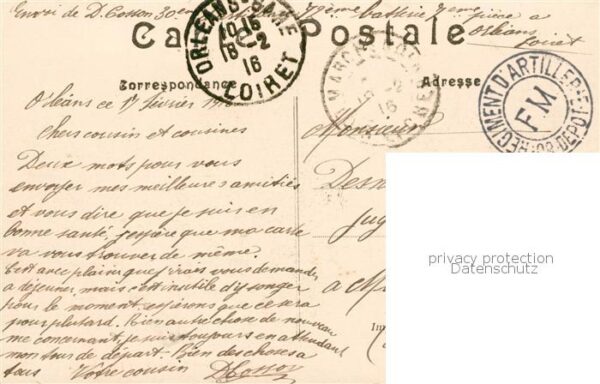 Envoi de D. Cosson 30eme 72eme batterie 7eme pièce a
Orléans
Loiret
Carte Postale
ORLEANS-GARE
10 15
18 - 2
16
LOIRET
Correspondance
Adresse
MARCH
16
REGIMENT D'ARTILLERIE
F.M
DEPOT
Orléans ce 17 février 1916
Chers cousin et cousines
Deux mots pour vous
envoyer mes meilleures amitiés
et vous dire que je suis en
bonne santé, j'espère que ma carte
va vous trouver de même.
C'est avec plaisir que j'irais vous demander
a dejeuner mais c'est inutile d'y songer
pour le moment espérons que ce sera
pour plus tard. Rien autre chose de nouveau
me concernant, je suis toujours en attendant
mon tour de départ. Bien des choses a
tous Votre cousin DCosson
Monsieur
Desn
Jug
a M
Im
privacy protection
Datenschutz